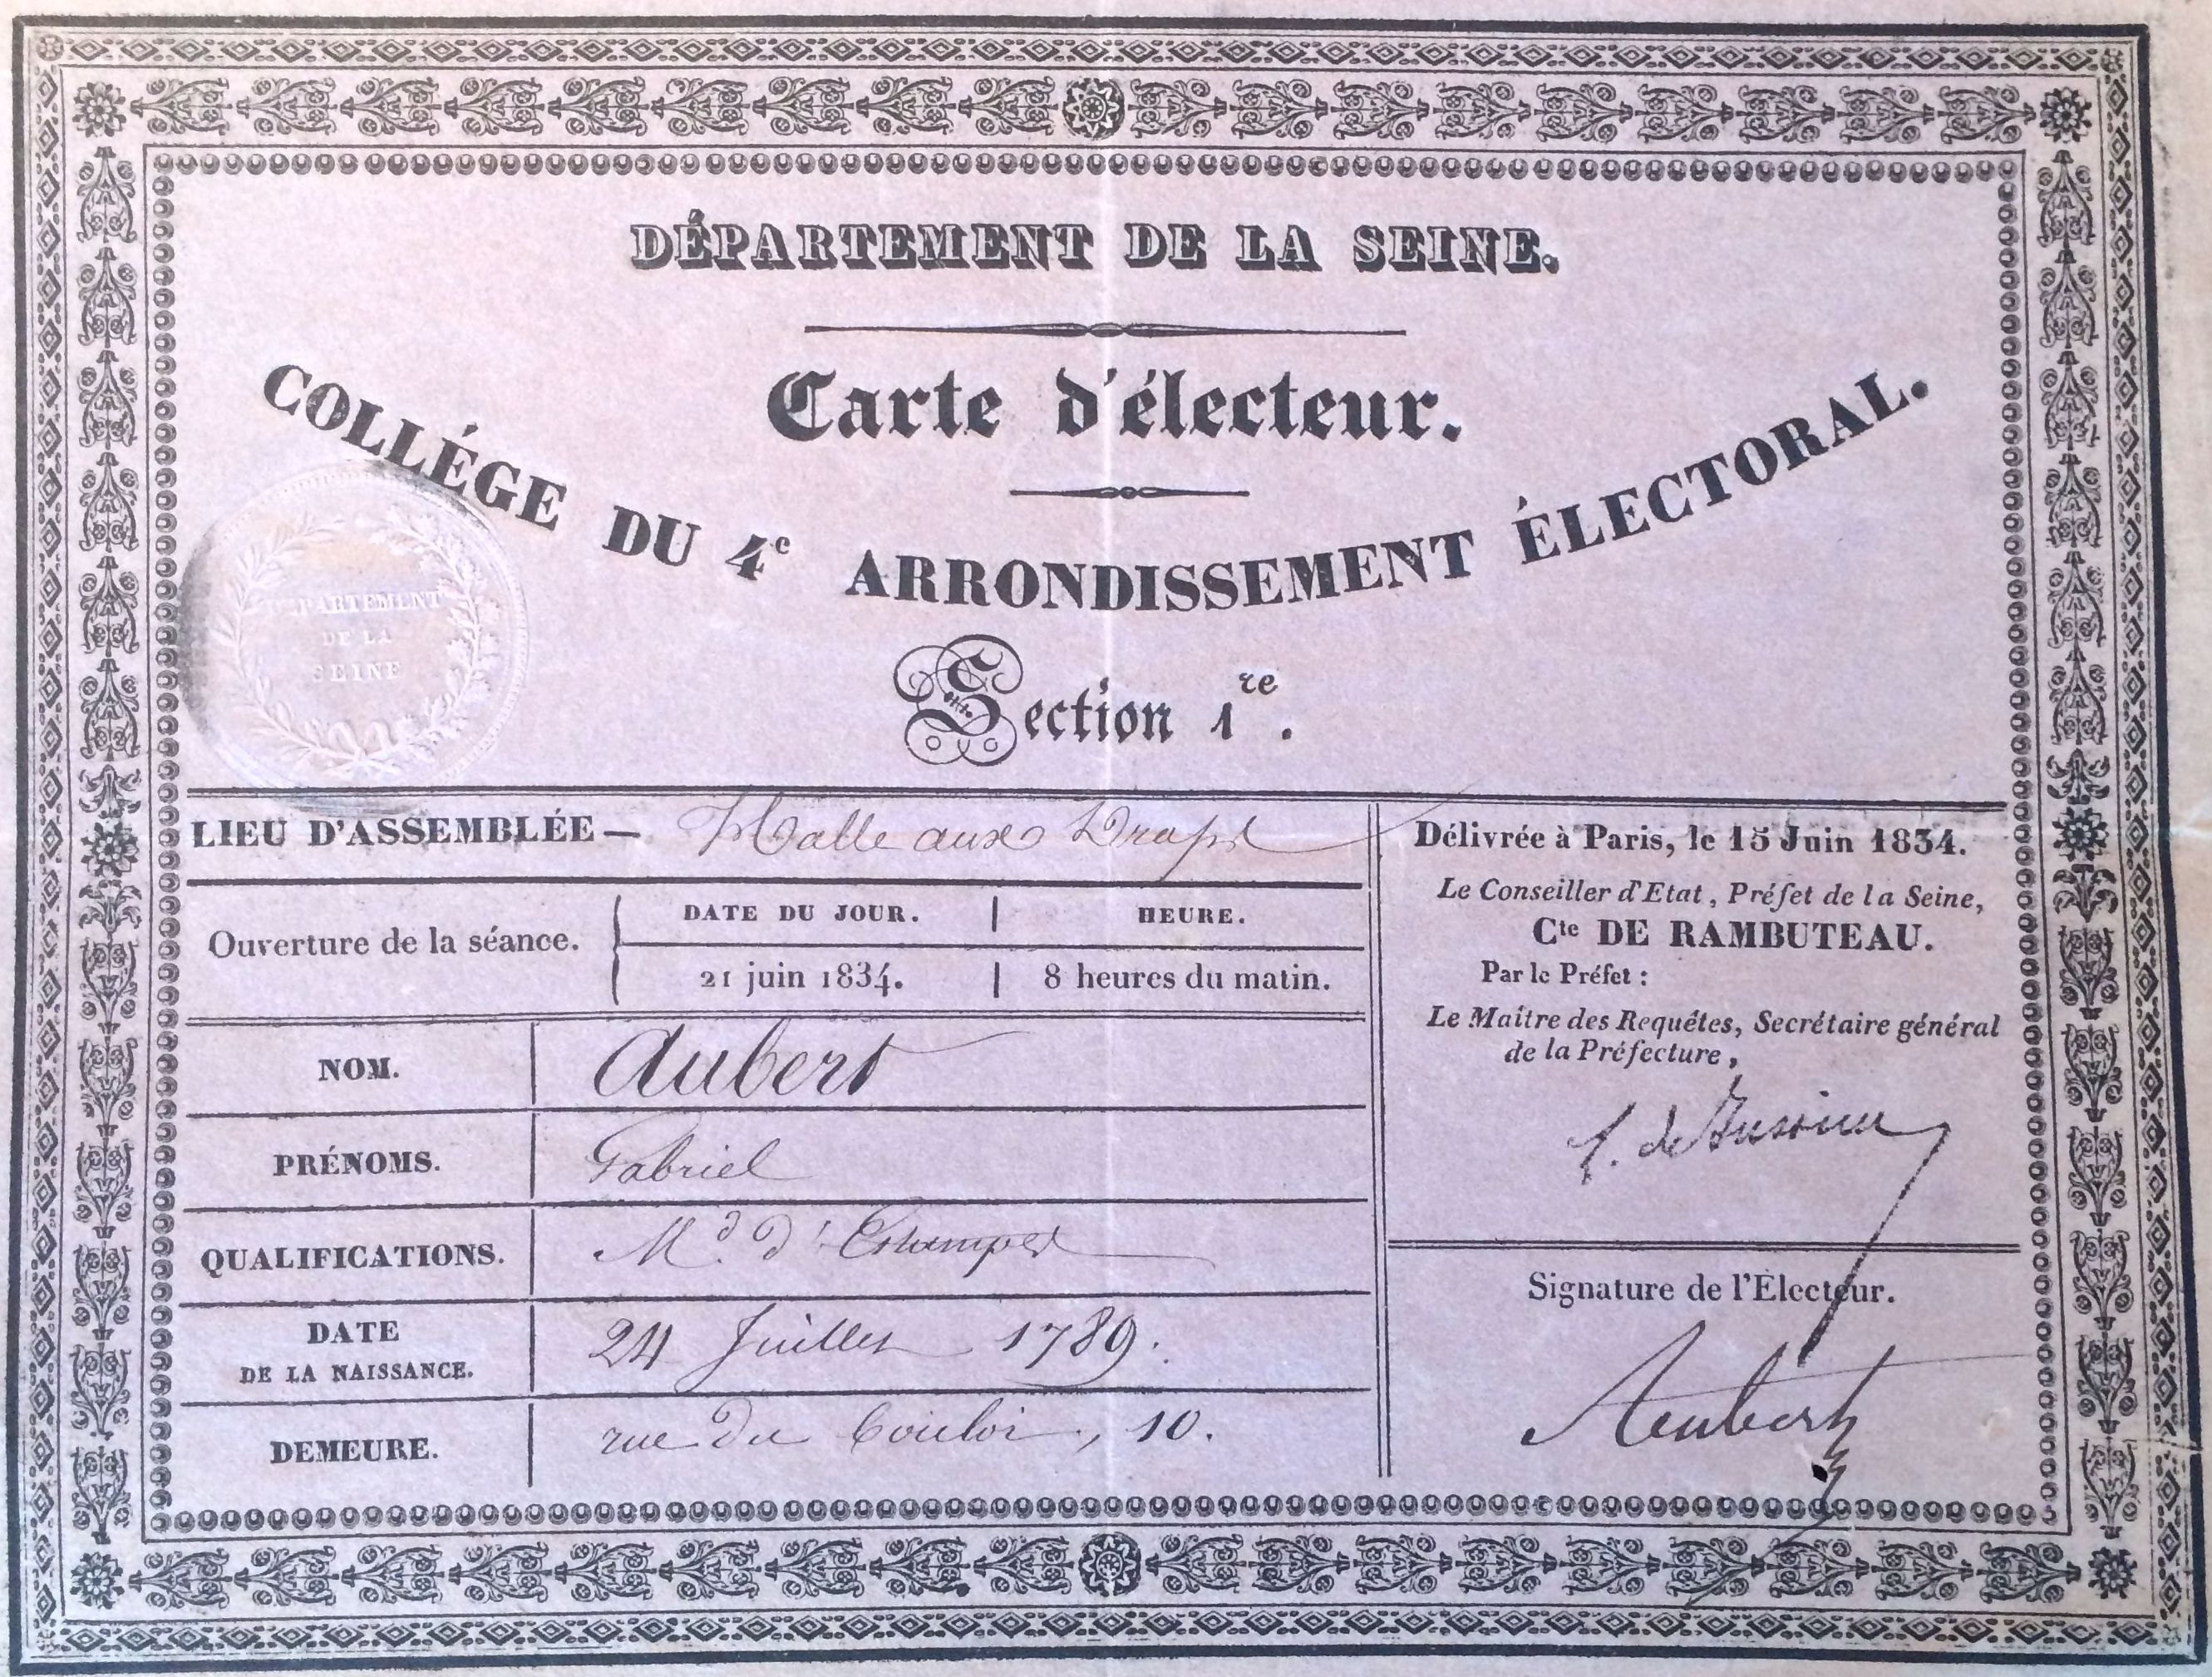 DÉPARTEMENT DE LA SEINE.
Carte d'électeur.
COLLÉGE DU 4e ARRONDISSEMENT ÉLECTORAL.
DÉPARTEMENT
DE LA
SEINE
Section 1re.
LIEU D'ASSEMBLÉE — Halle aux Draps
Ouverture de la séance.
DATE DU JOUR. | HEURE.
21 juin 1834. | 8 heures du matin.
NOM. Aubert
PRÉNOMS. Gabriel
QUALIFICATIONS. Md. d'Estampes
DATE
DE LA NAISSANCE. 24 Juillet 1789.
DEMEURE. rue du Bouloi, 10.
Délivrée à Paris, le 15 Juin 1834.
Le Conseiller d'Etat, Préfet de la Seine,
Cte DE RAMBUTEAU.
Par le Préfet :
Le Maître des Requêtes, Secrétaire général
de la Préfecture,
de Jussieu
Signature de l'Électeur.
Aubert